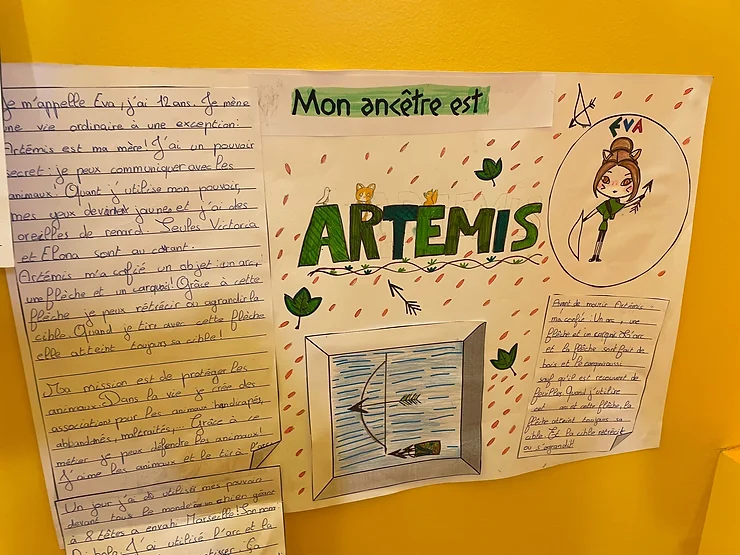 Je m'appelle Eva, j'ai 12 ans. Je mène
une vie ordinaire à une exception:
Artémis est ma mère! J'ai un pouvoir
secret: je peux communiquer avec les
animaux! Quant j'utilise mon pouvoir,
mes yeux devient jaunes et j'ai des
oreilles de renard. Seules Victoria
et Elona sont au courant.
Artémis m'a cofié un objet: un arc,
une flèche et un carquois! Grâce à cette
flèche je peux rétrécir ou agrandir la
cible. Quand je tire avec cette flèche
elle atteint toujours sa cible!
Ma mission est de protéger les
animaux. Dans la vie je crée des
association pour les animaux handicapés,
abbandonés, maltraités,... Grâce à ce
métier je peux défendre les animaux!
J'aime les animaux et le tir à l'arc
Un jour j'ai dû utiliser mes pouvoir
devant tous le monde: un chien géant
à 8 têtes a envahi Marseille! Son nom
Diabolo. J'ai utilisé l'arc et la
Mon ancêtre est
ARTEMIS
EVA
Avant de mourir Artémis
m'a confié: Un arc, une
flèche et un carquois. L'arc
et la flèche sont fait de
bois et le carquois aussi
sauf qu'il est recouvert de
feuilles. Quand j'utilise
cet arc et cette flèche, la
flèche atteint toujours sa
cible. Et la cible rétrécit
ou s'agrandit!